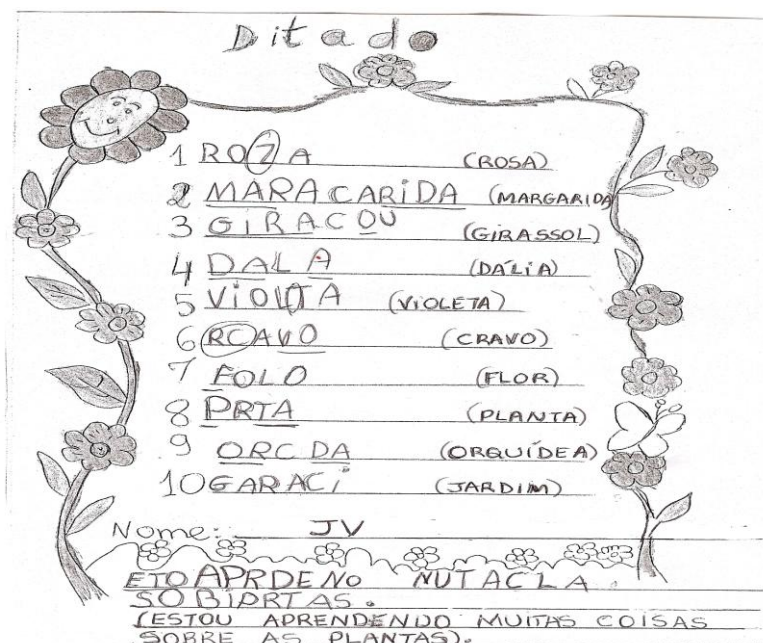 Ditado
1 ROZA (ROSA)
2 MARACARiDA (MARGARIDA)
3 GiRACOU (GiRASSOL)
4 DALA (DÁLiA)
5 ViOLTA (ViOLETA)
6 RCAVO (CRAVO)
7 FOLO (FLOR)
8 PRTA (PLANTA)
9 ORCDA (ORQUÍDEA)
10 GARACi (JARDIM)
Nome: JV
ETO APRDENO NUTACLA.
SOBIPRTAS.
(ESTOU APRENDENDO MUITAS COISAS
SOBRE AS PLANTAS).